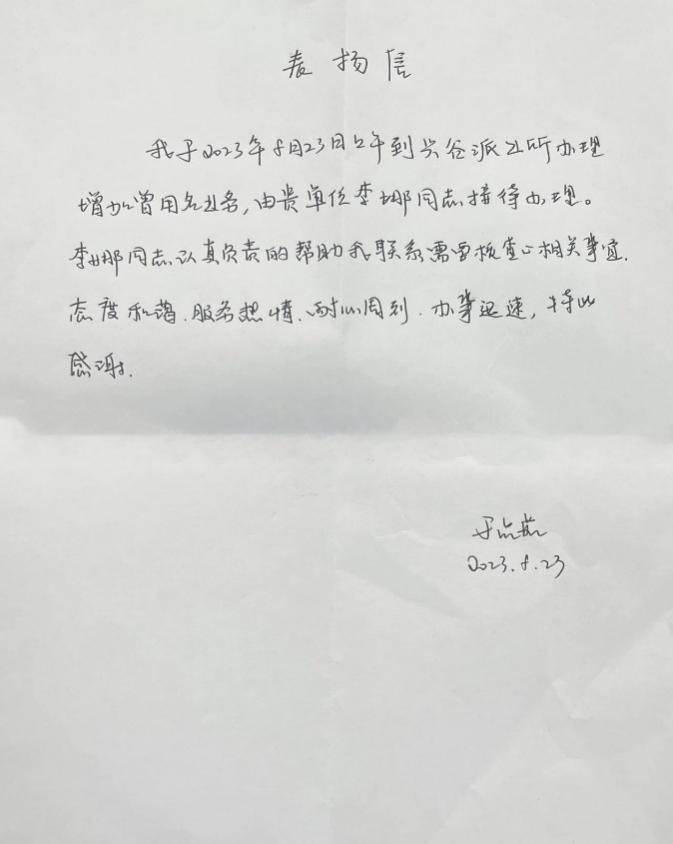 表扬信
我于2023年8月23日上午到兴谷派出所办理
增加曾用名业务,由贵单位李娜同志接待办理。
李娜同志认真负责的帮助我联系需要核查的相关事宜.
态度和蔼.服务热情.耐心周到.办事迅速,特此
感谢.
2023.8.23